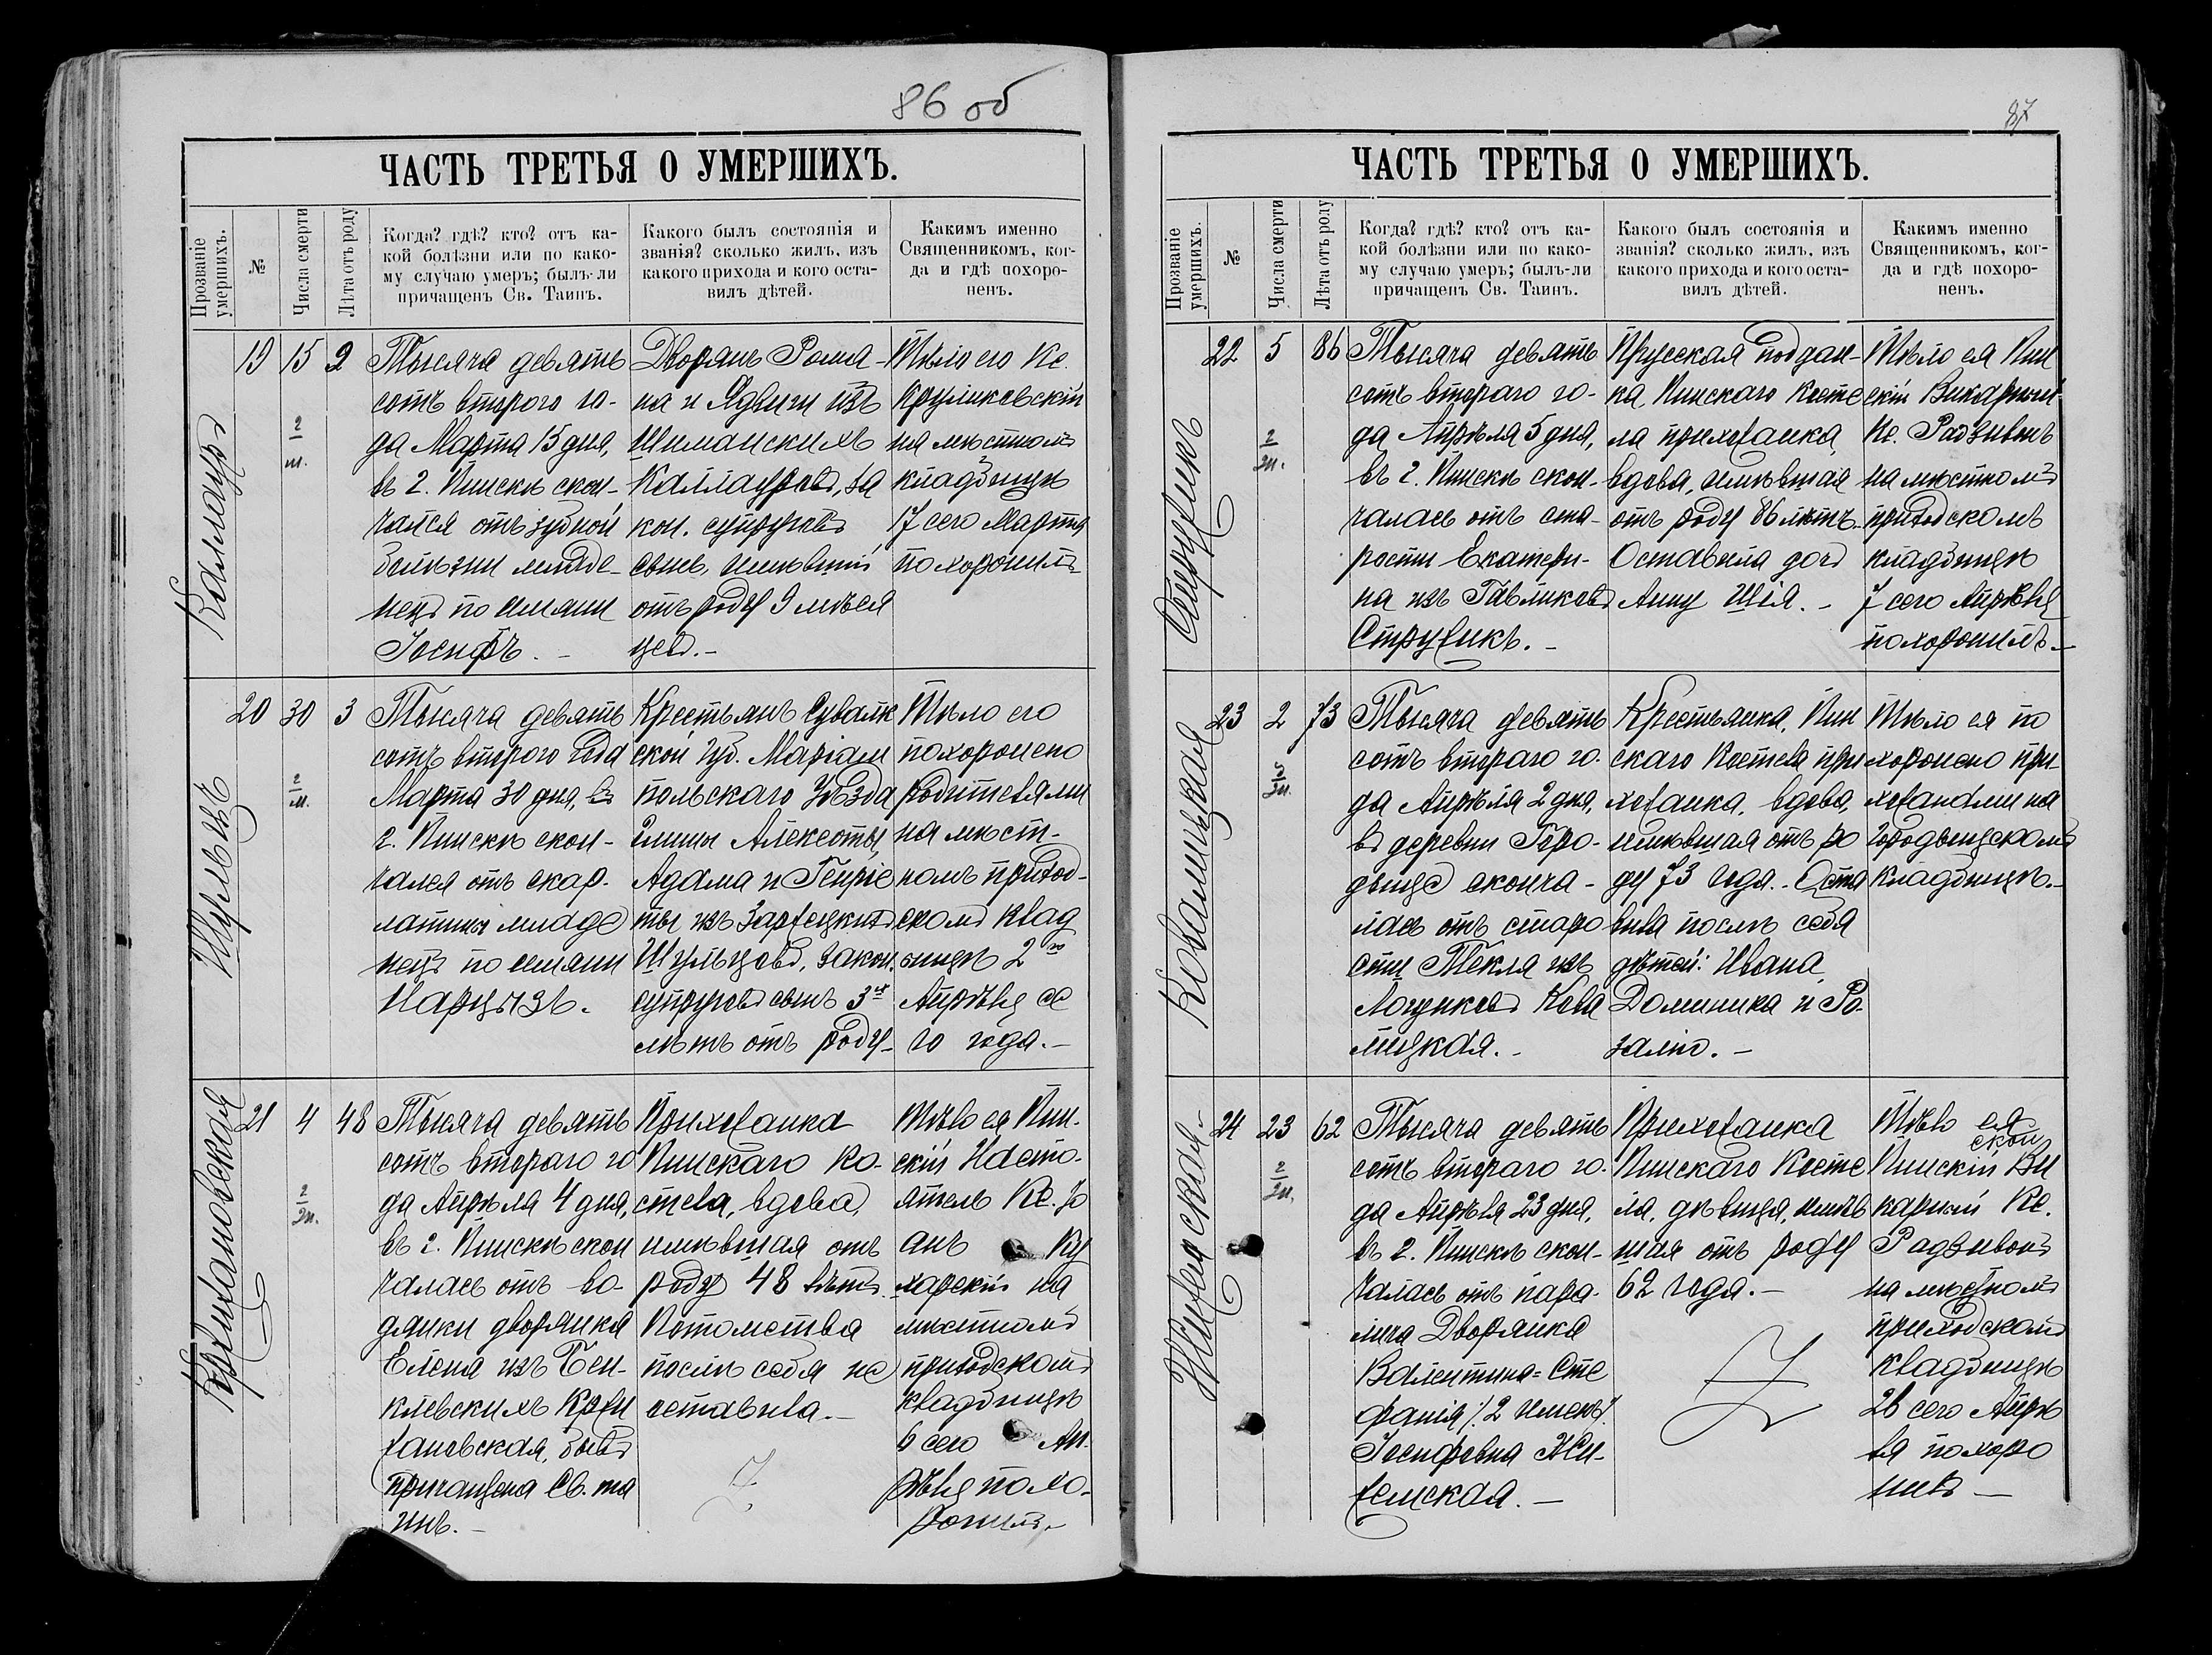 86 об
ЧАСТЬ ТРЕТЬЯ О УМЕРШИХЪ.
Прозваніе умершихъ.
№
Числа смерти
Лѣта отъ роду
Когда? гдѣ? кто? отъ ка-
кой болѣзни или по како-
му случаю умеръ; былъ-ли
причащенъ Св. Таинъ.
Какого былъ состоянія и
званія? сколько жилъ, изъ
какого прихода и кого оста-
вилъ дѣтей.
Какимъ именно
Священникомъ, ког-
да и гдѣ похоро-
ненъ.
Каллауръ
19
15
2/м.
9
Тысяча девять
сотъ второго го-
да Марта 15 дня,
въ г. Пинскѣ скон-
чался отъ зубной
болѣзни младе-
нецъ по имени
Іосифъ. -
Дворянъ Рома-
на и Ядвиги изъ
Шиманскихъ
Каллауровъ, за
кон. супруговъ
сынъ, имѣвшій
отъ роду 9 мѣся
цевъ.-
Тѣло его Кс.
Круликовскій
на мѣстномъ
кладбищѣ
17 сего Марта
похоронилъ
Шульцъ
20
30
2/м.
3
Тысяча девять
сотъ второго года
Марта 30 дня, въ
г. Пинскѣ скон-
чался отъ скар-
латины младе
нецъ по имени
Нарцызъ.
Крестьянъ Сувалк
ской губ. Маріам
польскаго Уѣзда
гмины Алексоты,
Адама и Генріе
ты изъ Зарѣцкихъ
Шульцовъ, закон.
супруговъ сынъ 3хъ
лѣтъ отъ роду-
Тѣло его
похоронено
родителями
на мѣст-
номъ приход-
скомъ клад
бищѣ 2го
Апрѣля се
го года.-
Крживановская
21
4
2/м.
48
Тысяча девять
сотъ второго го
да Апрѣля 4 дня,
въ г. Пинскѣ скон
чалась отъ во-
дянки дворянка
Елена изъ Бен-
клевскихъ Кржи
жановская, бывъ
причащена Св. та
инъ.-
Прихожанка
Пинскаго Ко-
стела, вдова,
имѣвшая отъ
роду 48 лѣтъ.
Потомства
послѣ себя не
оставила.-
Тѣло ея Пин-
скій Насто-
ятель Кс. Іо
анъ Ку
харскій на
мѣстномъ
приходскомъ
кладбищѣ
6 сего Ап-
рѣля похо-
ронилъ.-
87
ЧАСТЬ ТРЕТЬЯ О УМЕРШИХЪ.
Прозваніе умершихъ.
№
Числа смерти
Лѣта отъ роду
Когда? гдѣ? кто? отъ ка-
кой болѣзни или по како-
му случаю умеръ; былъ-ли
причащенъ Св. Таинъ.
Какого былъ состоянія и
званія? сколько жилъ, изъ
какого прихода и кого оста-
вилъ дѣтей.
Какимъ именно
Священникомъ, ког-
да и гдѣ похоро-
ненъ.
Стружикъ
22
5
2/м.
86
Тысяча девять
сотъ второго го-
да Апрѣля 5 дня,
въ г. Пинскѣ скон-
чалась отъ ста-
рости Екатери-
на изъ Гавликовъ
Стружикъ.-
Прусская поддан-
ка, Пинскаго Косте
ла прихожанка,
вдова, имѣвшая
отъ роду 86 лѣтъ.
Оставила дочь
Анну Шія.-
Тѣло ея Пин
скій Викарный
Кс. Радзивонъ
на мѣстномъ
приходскомъ
кладбищѣ
7 сего Апрѣля
похоронилъ.-
Ковалицкая
23
2
5/м.
73
Тысяча девять
сотъ второго го-
да Апрѣля 2 дня,
въ деревни Горо-
дыще сконча-
лась отъ старо
сти Текля изъ
Логушковъ Кова
лицкая.-
Крестьянка, Пин
скаго Костела при
хожанка, вдова,
имѣвшая отъ ро
ду 73 года.- Оста
вила послѣ себя
дѣтей: Ивана,
Доминика и Ро-
залію.-
Тѣло ея по
хоронено при
хожанами на
Городыщскомъ
кладбищѣ.-
24
23
2/м.
62
Тысяча девять
сотъ второго го-
да Апрѣля 23 дня,
въ г. Пинскѣ скон-
чалась отъ пара-
лича Дворянка
Валентина=Сте
фанія /2 именъ/
Іосифовна Жи-
жемская.-
Прихожанка
Пинскаго Косте
ла, дѣвица, имѣв
шая отъ роду
62 года.-
Тѣло ея
Пинскій Ви
карный Кс.
Радзивонъ
на мѣстномъ
приходскомъ
кладбищѣ
26 сего Апрѣ
ля похоро
нилъ -